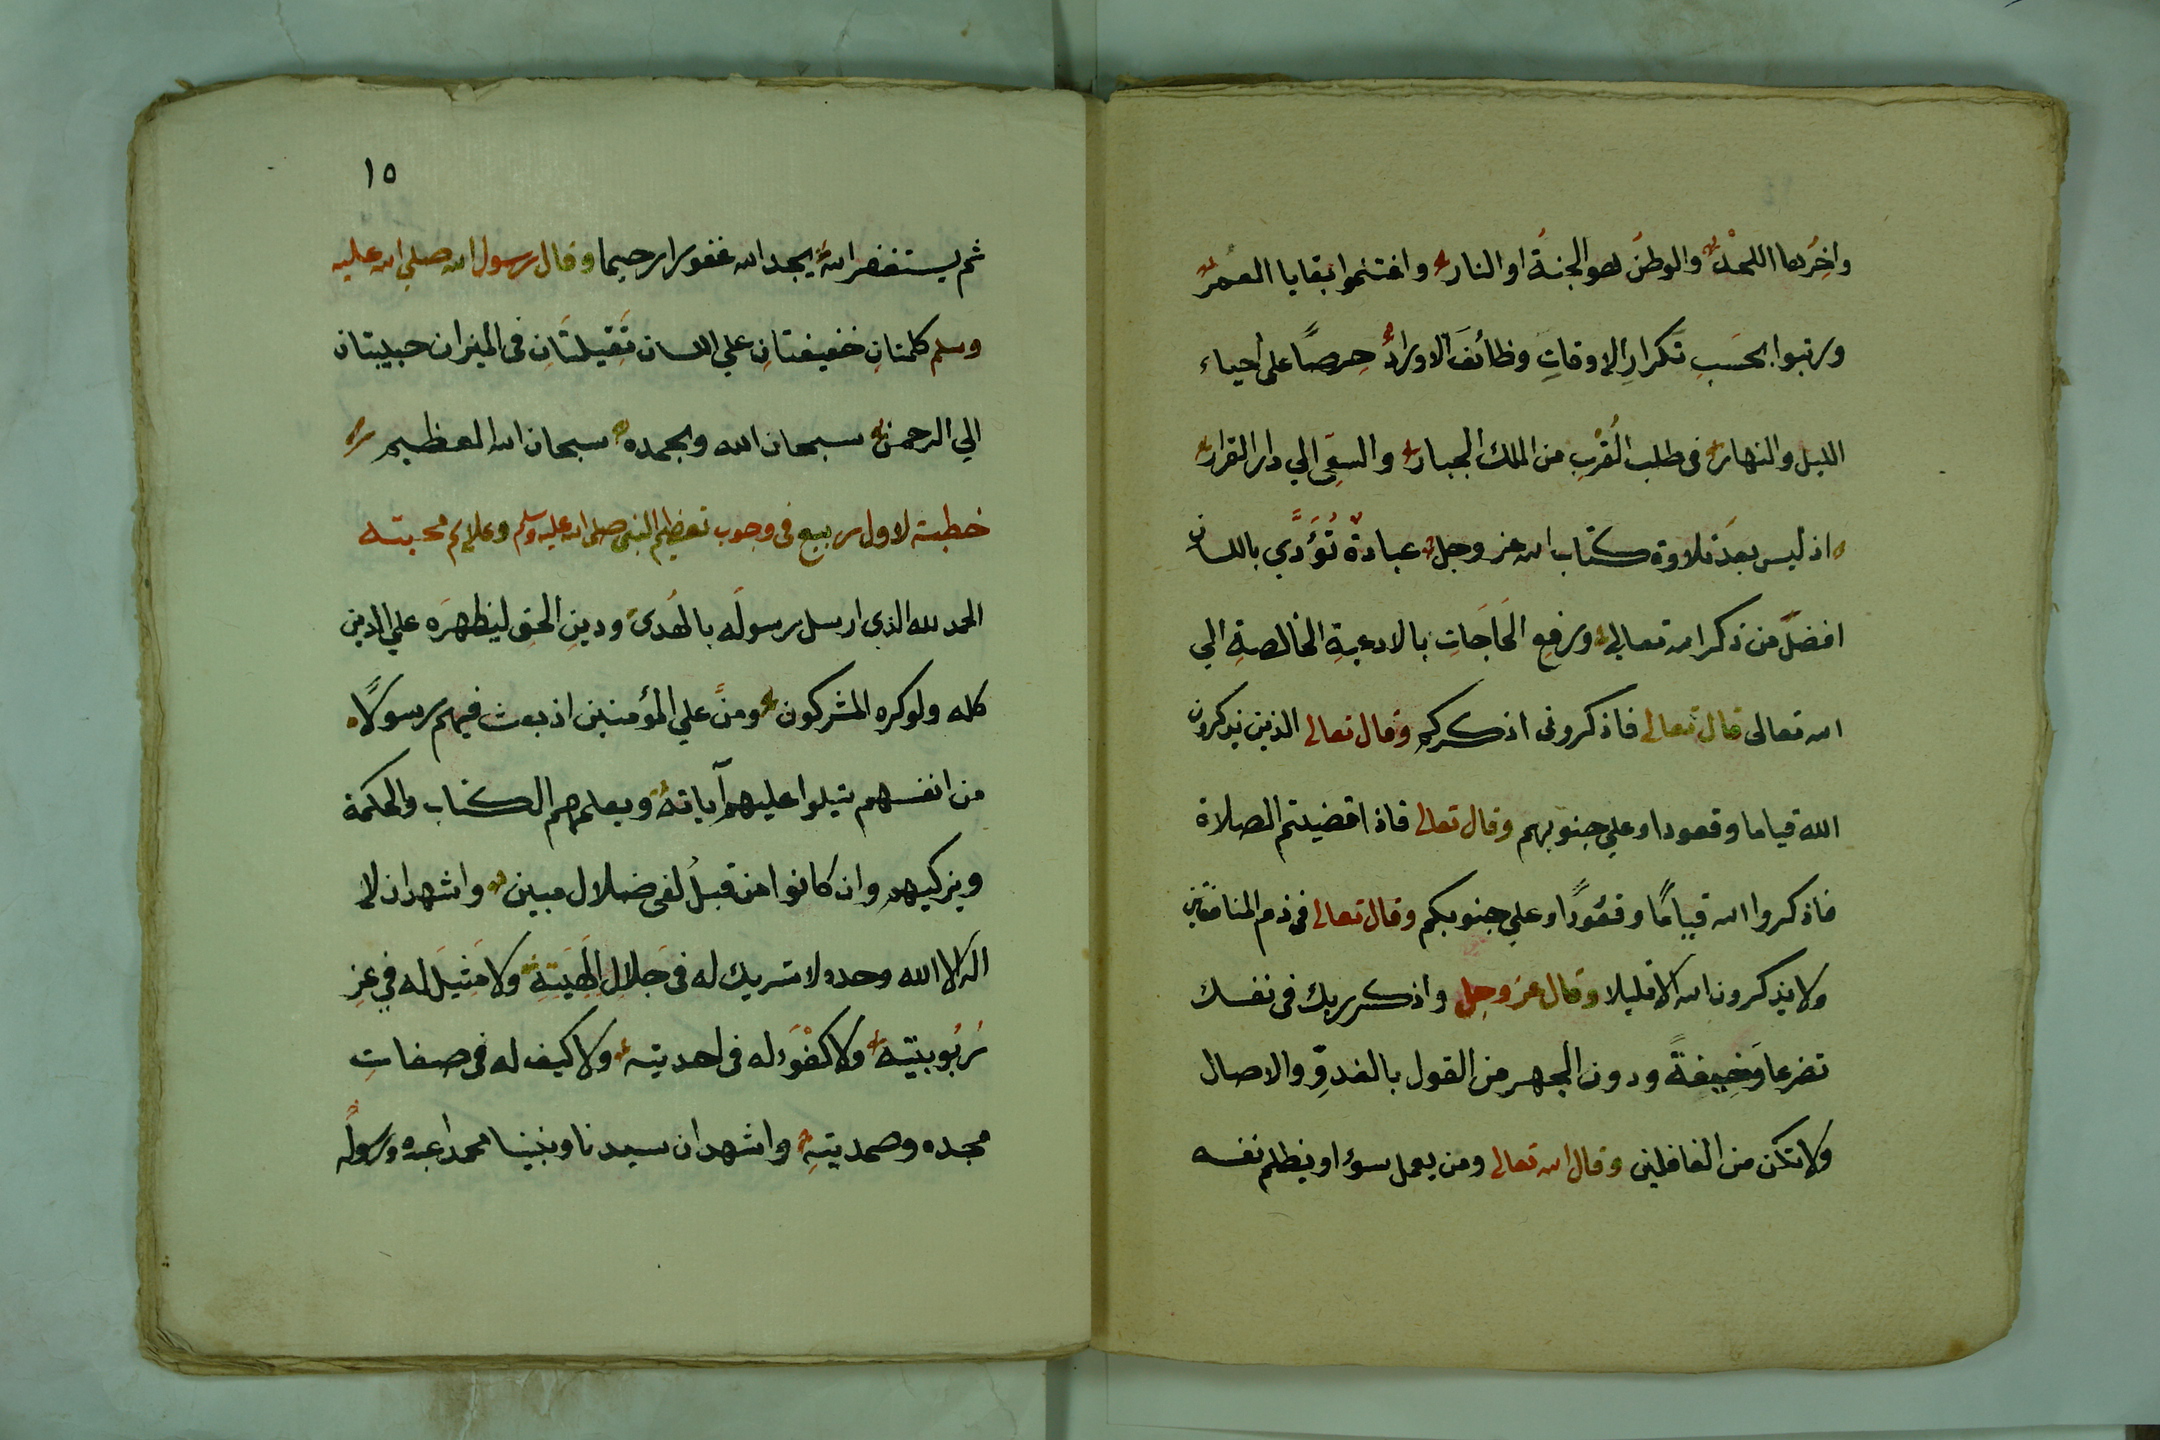 واخِرُها اللحدُ والوطنُ هو الجنةُ او النار واغتنموا بقايا العمر
ورتبوا بحسَبِ تكرارِ الاوقاتِ وظائفَ الاورادِ حِرصًا على احياء
الليل والنهار فى طلب القُرْبِ من الملك الجبار والسعي الي دار القرار
اذ ليس بعدَ تلاوة كتاب الله عز وجل عبادةٌ تُؤَدَّي باللسان
افضلَ من ذكر الله تعالي ورفعِ الحَاجَاتِ بالادعيةِ الخالصةِ الي
الله تعالى قال تعالى فاذكرونى اذكركم وقال تعالى الذين يذكرون
الله قياما وقعودا وعلي جنوبهم وقال تعالى فاذا قضيتم الصلاة
فاذكروا الله قيامًا وقعُودًا وعلي جنوبكم وقال تعالى فى ذم المنافقين
ولا يذكرون الله الا قليلا وقال عز وجل واذكر ربك فى نفسك
تضرعا وَخِيفةً ودون الجهر من القول بالغدوِّ والاصال
ولا تكن من الغافلين وقال الله تعالى ومن يعمل سوءا او يظلم نفسه
١٥
ثم يستغفر اللهَ يجد الله غفورا رحيما وقال رسول الله صلي الله عليه
وسلم كلمتانِ خفيفتانِ علي اللسان ثَقِيلتَانِ فى الميزان حبيبتان
الي الرحمن سبحان الله وبحمده سبحان الله العظيم
خطبة لاول ربيع فى وجوب تعظيم النبى صلى الله عليه وسلم وعلائم محبته
الحمد لله الذي ارسل رسولَه بالهُدى ودينِ الحقِ ليظهرَه علي الدين
كله ولو كره المشركون ومنَّ علي المؤمنين اذ بعث فيهم رسولًا
من انفسهم يتلوا عليهم آياته ويعلمهم الكتاب والحكمة
ويزكيهم وان كانوا من قبلُ لفى ضلال مبين واشهد ان لا
اله الا الله وحده لا شريك له فى جَلالِ الَهِيَتِهِ ولا مَثِيلَ له فى عِزِ
رُبُوبيّتِه ولا كفْوَ له فى احديته ولا كيف له فى صفاتِ
مجده وصمديتهِ واشهد ان سيدنا ونبينا محمدا عبده ورسولُه